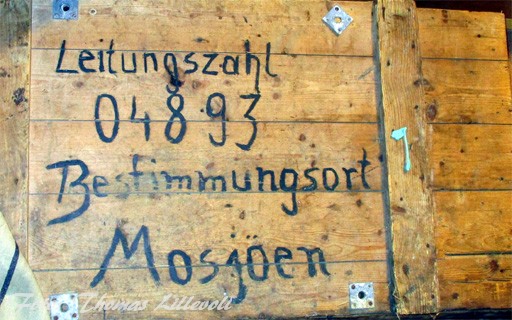 Leitungszahl
04893
Bestimmungsort
Mosjöen
Foto: Thomas Lillevoll